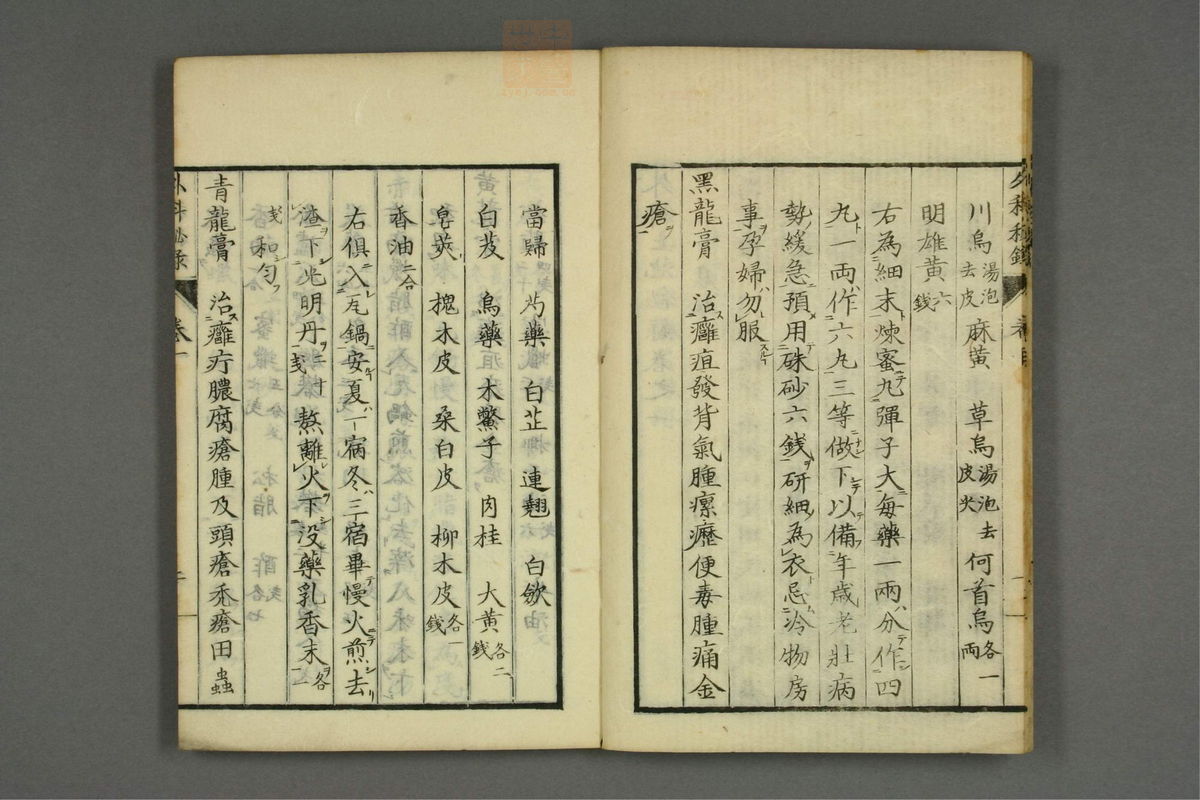 川烏湯泡去皮 麻黄 草烏湯泡去皮尖 何首烏各一両
明雄黄六錢
右為細末煉蜜丸彈子大毎藥一兩分作四
丸一両作六丸三等做下以備年歳老壯病
勢緩急預用硃砂六錢研細為衣忌冷物房
事孕婦勿服
黑龍膏 治癰疽發背氣腫瘰癧便毒腫痛金
瘡
當歸 芍藥 白芷 連翹 白歛
白芨 烏藥 木鱉子 肉桂 大黄各二錢
皂莢 槐木皮 桑白皮 柳木皮各一錢
香油二合
右俱入瓦鍋安夏一宿冬三宿畢慢火煎去
渣下光明丹十戔熬離火下没藥乳香末各一
戔和匀
青龍膏 治癰疔膿腐瘡腫及頭瘡禿瘡田蟲
外科秘录 卷一